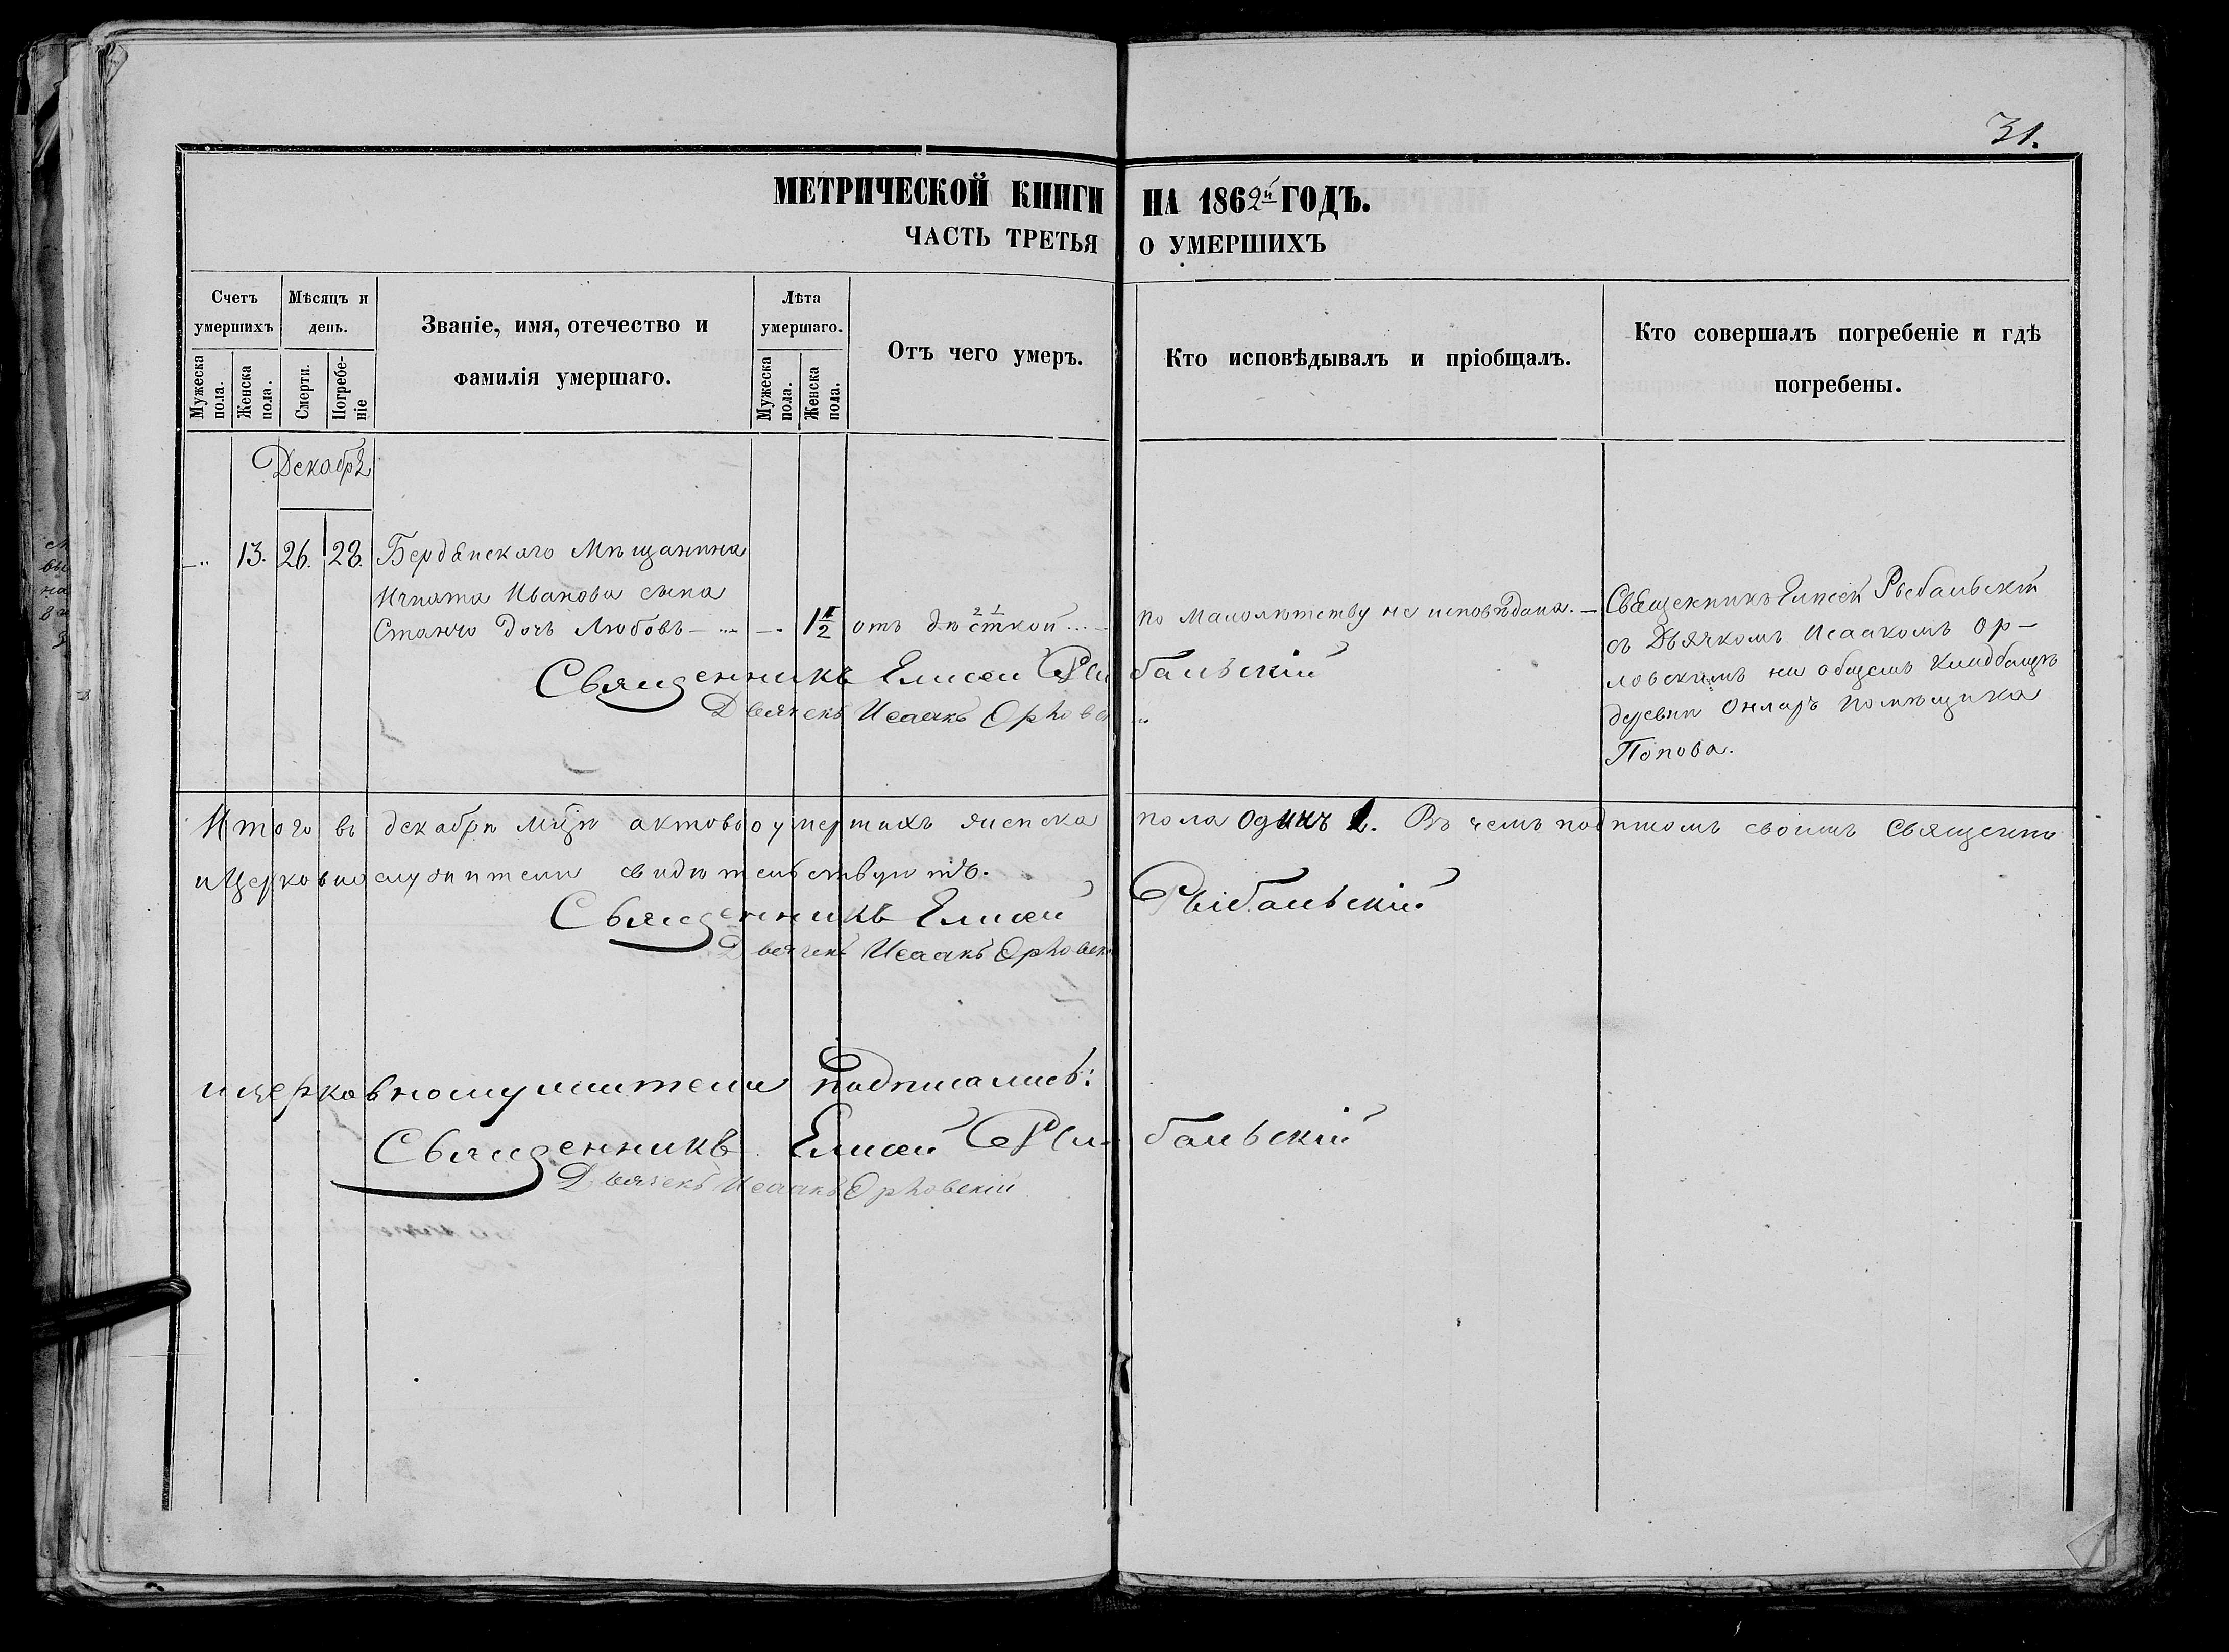 31.
МЕТРИЧЕСКОЙ КНИГИ НА 1862й ГОДЪ.
ЧАСТЬ ТРЕТЬЯ О УМЕРШИХЪ
Счетъ умершихъ
Мужеска пола.
Женска пола.
Мѣсяцъ и день.
Смерти.
Погребеніе
Званіе, имя, отечество и фамилія умершаго.
Лѣта умершаго.
Мужеска пола.
Женска пола.
Отъ чего умеръ.
Кто исповѣдывалъ и пріобщалъ.
Кто совершалъ погребеніе и гдѣ погребены.
Декабрь
13. 26. 28. Бердянского Мѣщанина
Игната Иванова сына
Станчо дочь Любовь
1 1/2
отъ
по малолѣтству не исповѣдана.
Священникъ Елисей Рыбальскій
съ Дьячкомъ Исаакомъ Ор-
ловскимъ на общемъ кладбищѣ
деревни Онларъ помѣщика
Попова.
Священникъ Елисей Рыбальскій
Дьячекъ Исаакъ Орловск
Итого въ декабрѣ мцѣ актовъ о умершихъ женска пола одинъ 1. Въ чемъ подписомъ своимъ Священно
и Церковнослужители свидѣтельствуютъ.
Священникъ Елисей Рыбальскій
Дьячекъ Исаакъ Орловск
и церковнослужители подписались:
Священникъ Елисей Рыбальскій
Дьячекъ Исаакъ Орловскій